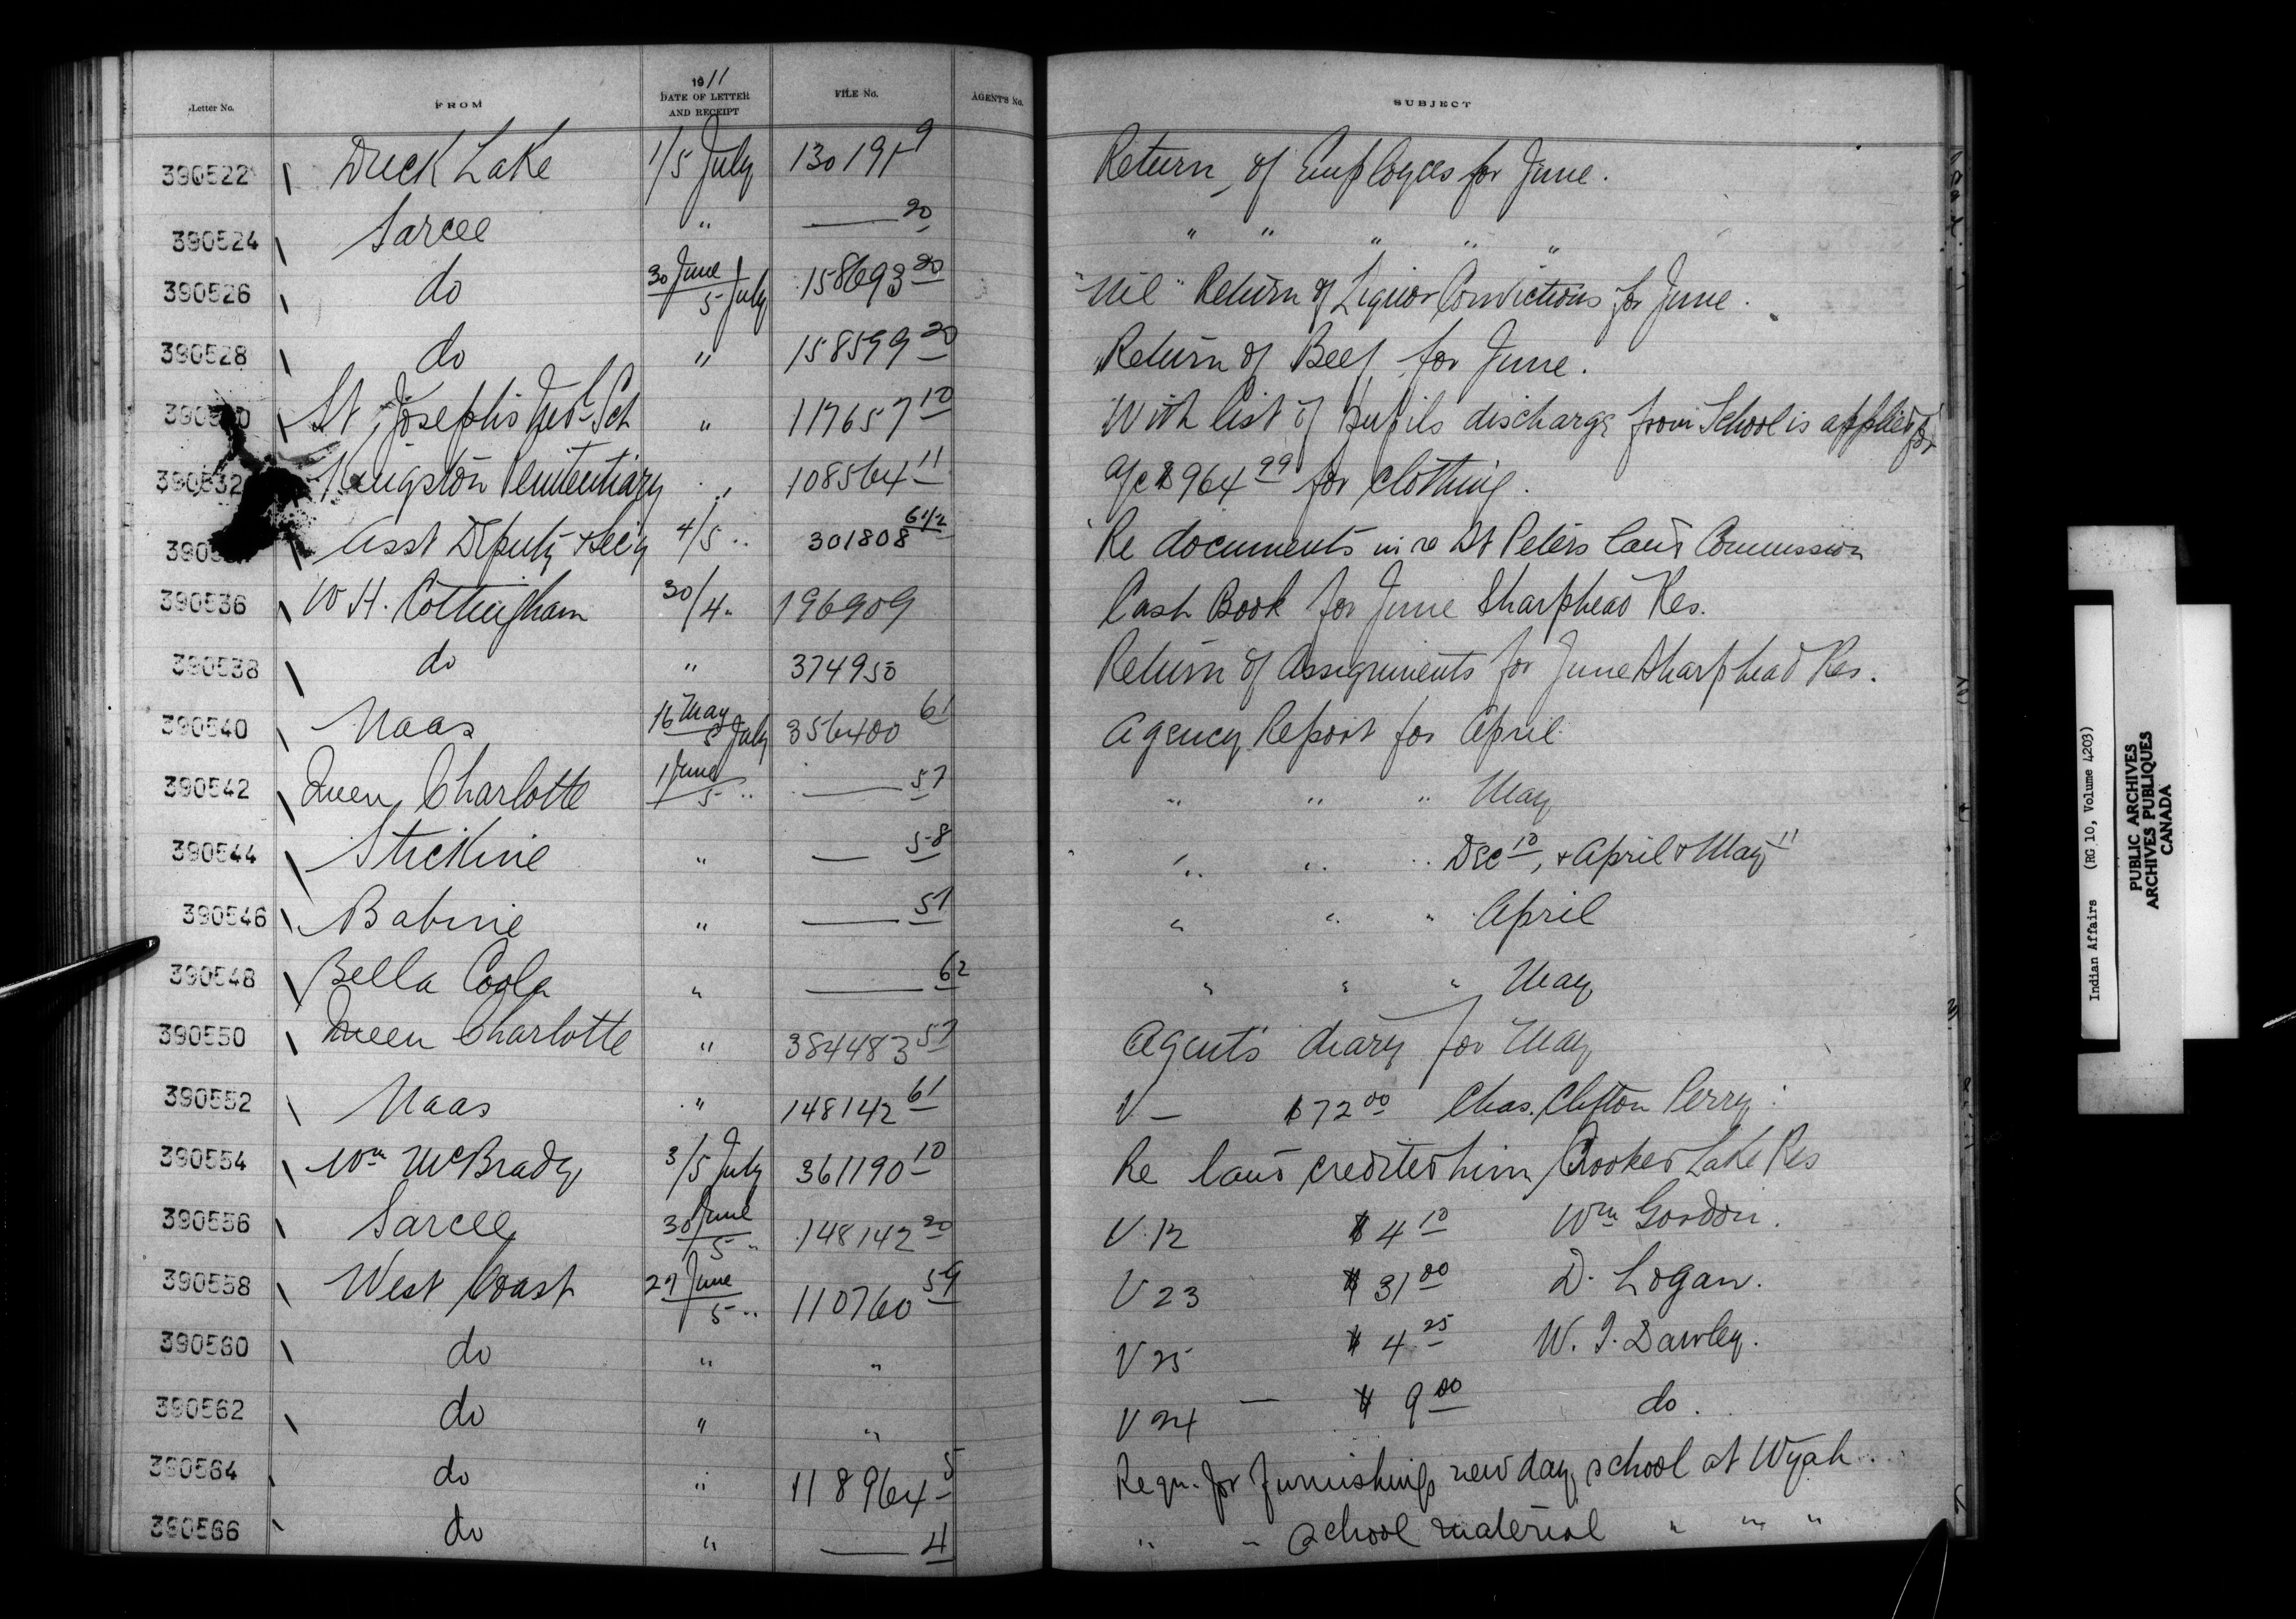 Letter No. FROM 1911 DATE OF LETTER AND RECEIPT FILE No. AGENT'S No. SUBJECT
390522 Duck Lake 1/5 July 130191-9 Return of Employees for June.
390524 Sarcee " —— 20 " " " " "
390526 do 30 June / 5 July 158693 20 "Nil" Return of Liquor Convictions for June.
390528 do " 158599 20 Return of Beef for June.
St Josephs Ind. Sch " 117657 10 With list of pupils discharge from School is applied for
390532 Kingston Penitentiary " 108564 11 a/c $964 99 for clothing.
Asst Deputy & Secy 4/5 " 301808 61/2 Re documents in re St Peters land Commission
390536 W H. Cottingham 30/4 " 196909 Cash Book for June Sharphead Res.
390538 do " 374950 Return of Assignments for June Sharphead Res.
390540 Naas 16 May / 5 July 356400 61 Agency Report for April
390542 Queen Charlotte 1 June / 5 " —— 57 " " " May
390544 Stickine " —— 58 " " " Dec 10, & April & May 11
390546 Babine " —— 51 " " " April
390548 Bella Coola " —— 62 " " " May
390550 Queen Charlotte " 384483 57 Agents diary for May
390552 Naas " 148142 61 V — $72 00 Chas. Clifton Perry
390554 Wm McBrady 3/5 July 361190 10 Re land credited him Crooked Lake Res
390556 Sarcee 30 June / 5 " 148142 20 V 12 $4 10 Wm Gordon.
390558 West Coast 27 June / 5 " 110760 59 V 23 $31 00 D. Logan.
390560 do " " V 25 $4 25 W. T. Dawley.
390562 do " " V 24 — $9 00 do.
390564 do " 118964-5 Reqn. for furnishing new day school at Wyah
390566 do " —— 4 " " School material " " "
Indian Affairs (RG 10, Volume 4203)
PUBLIC ARCHIVES
ARCHIVES PUBLIQUES
CANADA